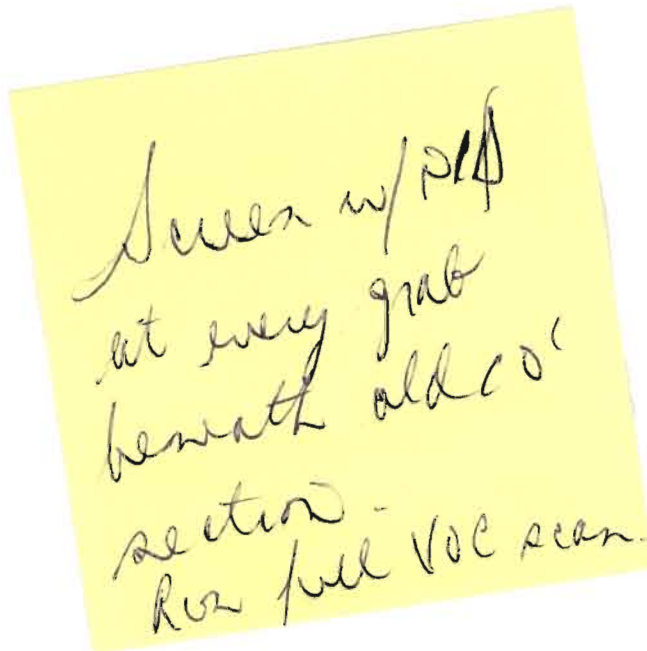 Screen w/ PID
at every grab
beneath old 10'
section.
Run full VOC scan.